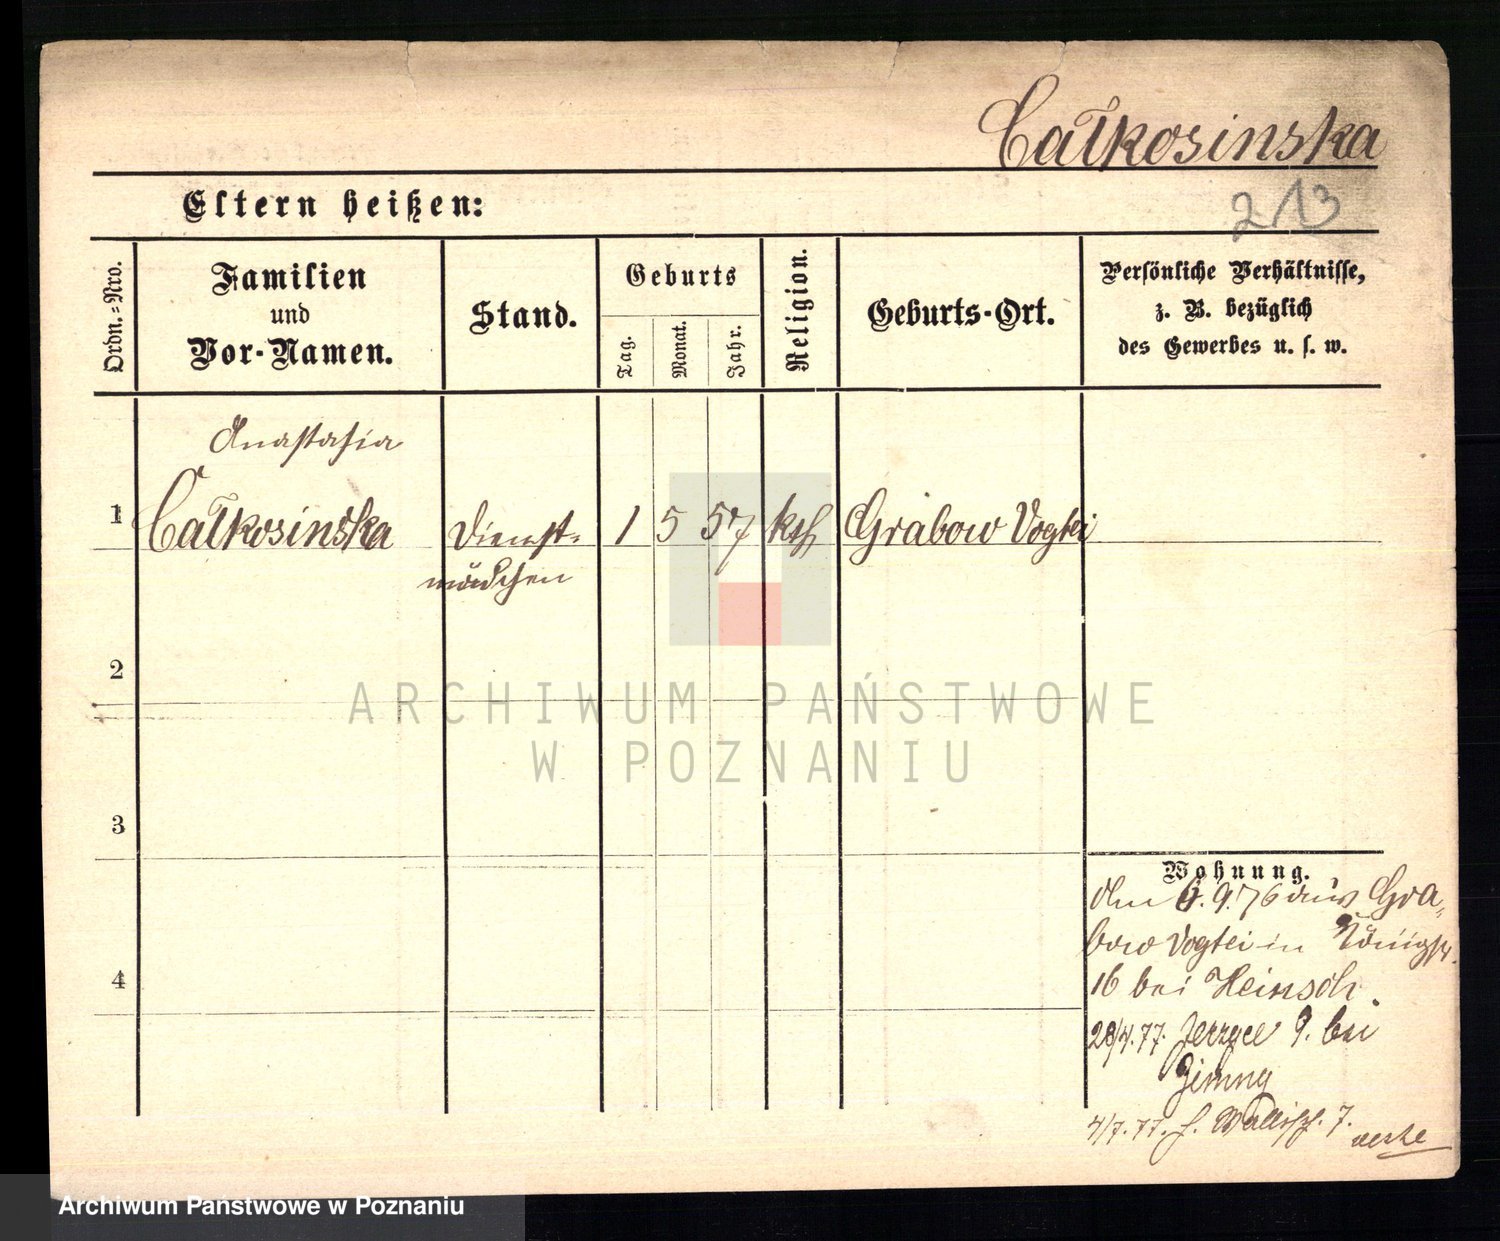 Całkosinska
213
Eltern heißen:
Ordn.-Nro.
Familien
und
Vor-Namen.
Stand.
Geburts
Tag.
Monat.
Jahr.
Religion.
Geburts-Ort.
Persönliche Verhältnisse,
z. B. bezüglich
des Gewerbes u. s. w.
Anastasia
1 Całkosinska Dienst- 1 5 57 kth Grabow Vogtei
mädchen
2
ARCHIWUM PAŃSTWOWE
W POZNANIU
3
4
Wohnung.
den 6.9.76 aus Gra-
bow Vogtei in Königstr.
16 bei Heinsch.
28/4.77. 9. bei
Zimny
4/7.77. Wallisch. 7.
Archiwum Państwowe w Poznaniu